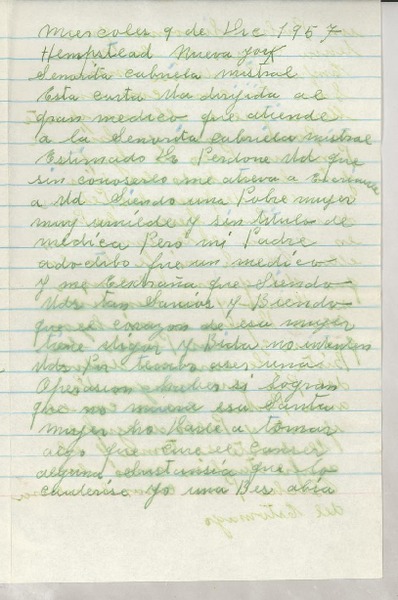 Miercoles 9 de Dic 1957
Hempstead Nueva York
Senorita cabriela mistral
Esta carta Va dirijida al
gran medico que atiende
a la Senorita cabriela mistral
Estimado Sr Perdone Ud que
sin conoserlo me atreva a Escrivirle
a Ud Siendo una Pobre mujer
muy umilde y sin titulo de
medica Pero mi Padre
adoctibo fue un medico
Y me Extraña que Siendo
Uds tan Savios y Biendo
que el corazon de esa mujer
tiene vigor y Bida no intenten
Uds Por tembor aser una
Operasion haber si logran
que no muera esa Santa
mujer no Base a tomar
algo que cure el Canser
alguna substansia que lo
cauterise Yo una Bes abia
del Estomago